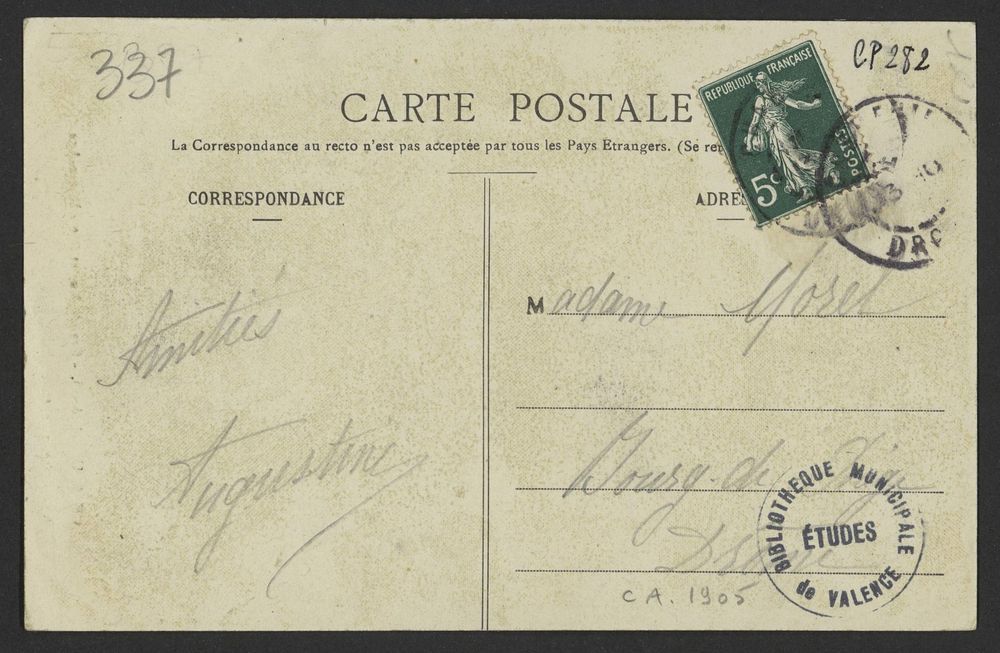 337
CP 282
CARTE POSTALE
REPUBLIQUE FRANÇAISE
POSTES
5c
La Correspondance au recto n'est pas acceptée par tous les Pays Etrangers. (Se ren
CORRESPONDANCE
ADRES
DRO
Amitiés
Augustine
Madame Morel
Bourg-de-Péage
Drôme
BIBLIOTHEQUE MUNICIPALE
ÉTUDES
de VALENCE
CA. 1905